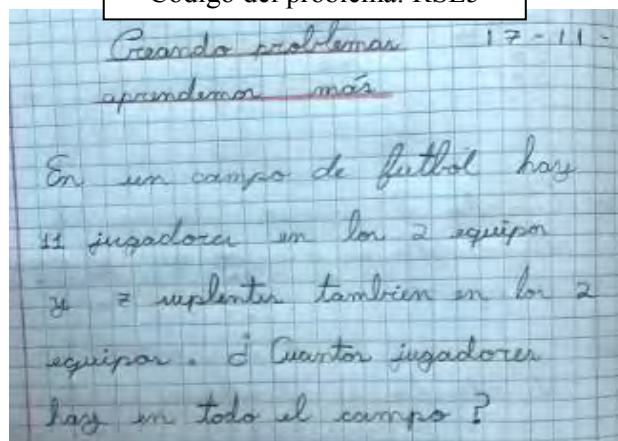 Código del problema: RSE5
Creando problemas 17-11-
aprendemos más
En un campo de futbol hay
11 jugadores en los 2 equipos
y 7 suplentes tambien en los 2
equipos. ¿Cuantos jugadores
hay en todo el campo?